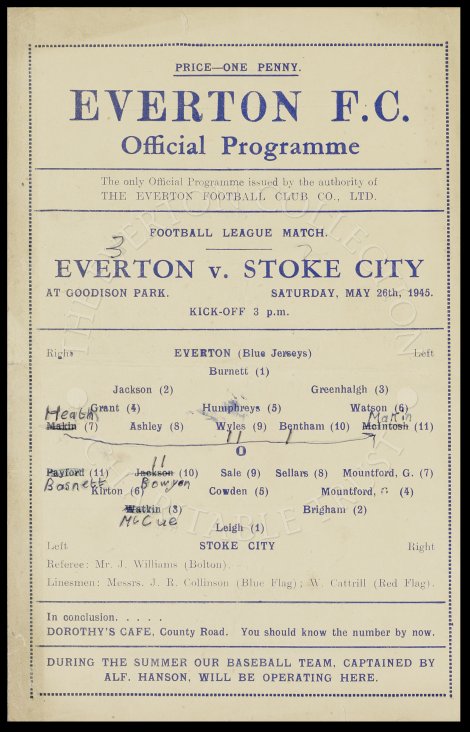 PRICE—ONE PENNY.
EVERTON F.C.
Official Programme
The only Official Programme issued by the authority of
THE EVERTON FOOTBALL CLUB CO., LTD.
FOOTBALL LEAGUE MATCH.
3 2
EVERTON v. STOKE CITY
AT GOODISON PARK. SATURDAY, MAY 26th, 1945.
KICK-OFF 3 p.m.
Right EVERTON (Blue Jerseys) Left
Burnett (1)
Jackson (2) Greenhalgh (3)
Grant (4) Humphreys (5) Watson (6)
Heath Makin
Makin (7) Ashley (8) Wyles (9) Bentham (10) McIntosh (11)
11 1
O
11
Payford (11) Jackson (10) Sale (9) Sellars (8) Mountford, G. (7)
Basnett Bowyer
Kirton (6) Cowden (5) Mountford, (4)
Watkin (3) Brigham (2)
McCue
Leigh (1)
Left STOKE CITY Right
Referee: Mr. J. Williams (Bolton).
Linesmen: Messrs. J. R. Collinson (Blue Flag); W. Cattrill (Red Flag).
In conclusion. . . . .
DOROTHY'S CAFE, County Road. You should know the number by now.
DURING THE SUMMER OUR BASEBALL TEAM, CAPTAINED BY
ALF. HANSON, WILL BE OPERATING HERE.
THE EVERTON COLLECTION
CHARITABLE TRUST